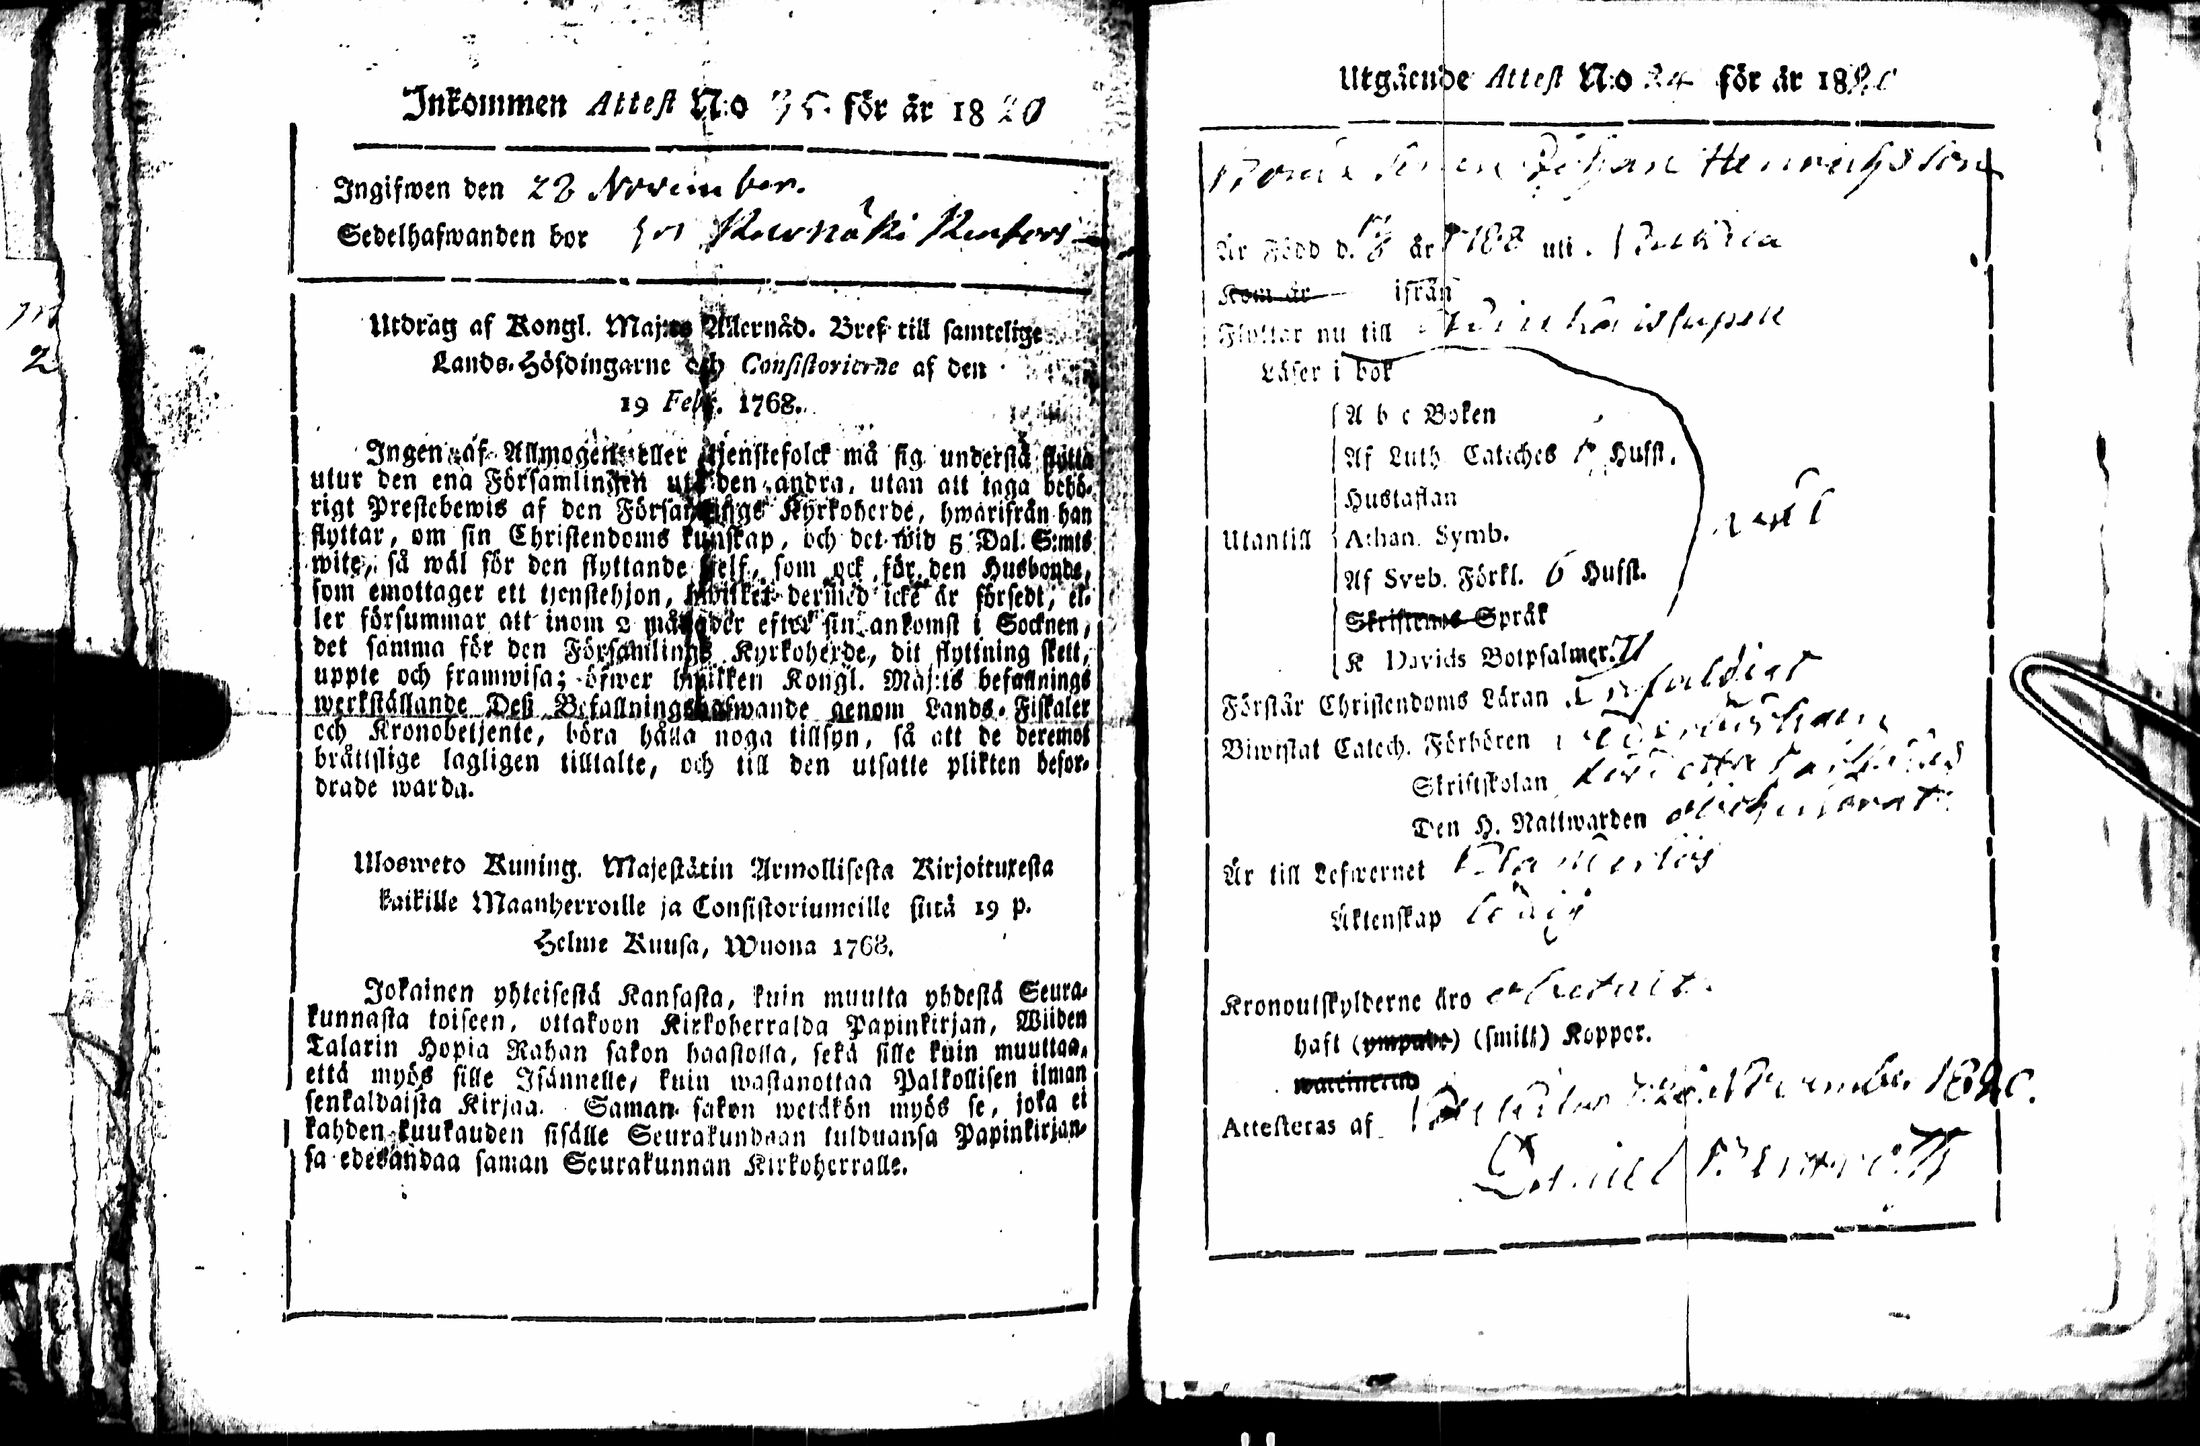 Inkommen Attest N:o 35. för år 1820
Ingifwen den 28 November.
Sedelhafwanden bor
Utdrag af Kongl. Maj:ts Allernåd. Bref till samtelige
Lands-Höfdingarne och Consistorierne af den
19 Febr. 1768.
Ingen af Allmogen eller tjenstefolck må sig understå flytta
utur den ena Församlingen uti den andra, utan att taga behö-
rigt Prestebewis af den Församlings Kyrkoherde, hwarifrån han
flyttar, om sin Christendoms kunskap, och det wid 5 Dal. S:mts
wite, så wäl för den flyttande self, som ock för den Husbonde,
som emottager ett tjenstehjon, hwilket dermed icke är försedt, el-
ler försummar att inom 2 månader efter sin ankomst i Socknen,
det samma för den Församlings Kyrkoherde, dit flyttning skett,
uppte och framwisa; öfwer hwilken Kongl. Maj:ts befallnings
werkställande Deß Befallningshafwande genom Lands-Fiskaler
och Kronobetjente, böra hålla noga tillsyn, så att de deremot
bråttslige lagligen tilltalte, och till den utsatte plikten befor-
drade warda.
Ulosweto Kuning. Majestätin Armollisesta Kirjoituxesta
kaikille Maanherroille ja Consistoriumeille siitä 19 p.
Helme Kuusa, Wuona 1768.
Jokainen yhteisestä Kansasta, kuin muutta yhdestä Seura-
kunnasta toiseen, ottakoon Kirkoherralda Papinkirjan, Wiiden
Talarin Hopia Rahan sakon haastolla, sekä sille kuin muuttaa,
että myös sille Isännelle, kuin wastanottaa Palkollisen ilman
senkaldaista Kirjaa. Saman sakon wetäkön myös se, joka ei
kahden kuukauden sisälle Seurakundaan tulduansa Papinkirjan-
sa edeskandaa saman Seurakunnan Kirkoherralle.
Utgående Attest N:o 24 för år 1820
Johan Henrichsson
Är Född d. år 1788 uti
Kom år ifrån
Flyttar nu till
Läser i bok
A b c Boken
Af Luth. Cateches 6 Hufst.
Hustaflan
Utantill Athan. Symb.
Af Sveb. Förkl. 6 Hufst.
Skriftenes Språk
K Davids Botpsalmer.
Förstår Christendoms Läran Enfaldigt
Biwistat Catech. Förhören
Skriftskolan
Den H. Nattwarden obehindrat
Är till Lefwernet
Äktenskap ledig
Kronoutskylderne äro obetalt.
haft (ympade) (smitt) Koppor.
waccinerad
Attesteras af November 1820.
Daniel